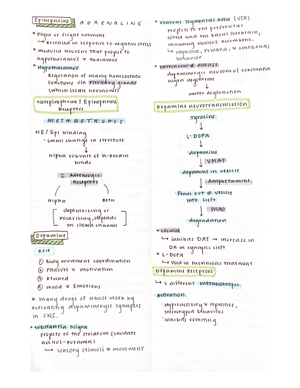 Epinephrine ADRENALINE
• Fight or flight hormone
↳ released in response to negative stress
• medulla neurons that project to
hypothalamus + thalamus
• hypothalamus
regulation of many homeostatic
functions via pituitary glands
(which secrete hormones)
Norepinephrine / Epinephrine
Receptors
METABOTROPIC
NE/Epi binding
small change in structure
alpha subunit of G-protein
binds
2 Adrenergic
Receptors
Alpha Beta
depolarizing or
polarizing, depends
on channel
Dopamine
ROLE
① Body movement coordination
② Pleasure + motivation
③ Reward
④ Mood + Emotions
* Many drugs of abuse work by
activating dopaminergic synapses
in CNS.
• substantia nigra
projects to the striatum (caudate
nucleus + putamen)
↳ sensory stimuli + movement
• ventral tegmental area (VTA)
projects to the prefrontal
cortex and the basal forebrain,
including nucleus accumbens
↳ cognitive, reward, + emotional
behavior
• Parkinson's disease
dopaminergic neurons of substantia
nigra degenerate
↳ motor dysfunction
Dopamine neurotransmission
Tyrosine
L-DOPA
dopamine
VMAT
dopamine in vesicle
Amphetamine
from out of vesicle
into cleft
MAO
degradation
• cocaine
↳ inhibits DAT → increase in
DA in synaptic cleft
• L-DOPA
↳ used in Parkinsons treatment
Dopamine Receptors
↳ 5 different metabotropic
activation
- hyperactivity + repetitive,
stereotyped behaviors
- inhibits vomiting